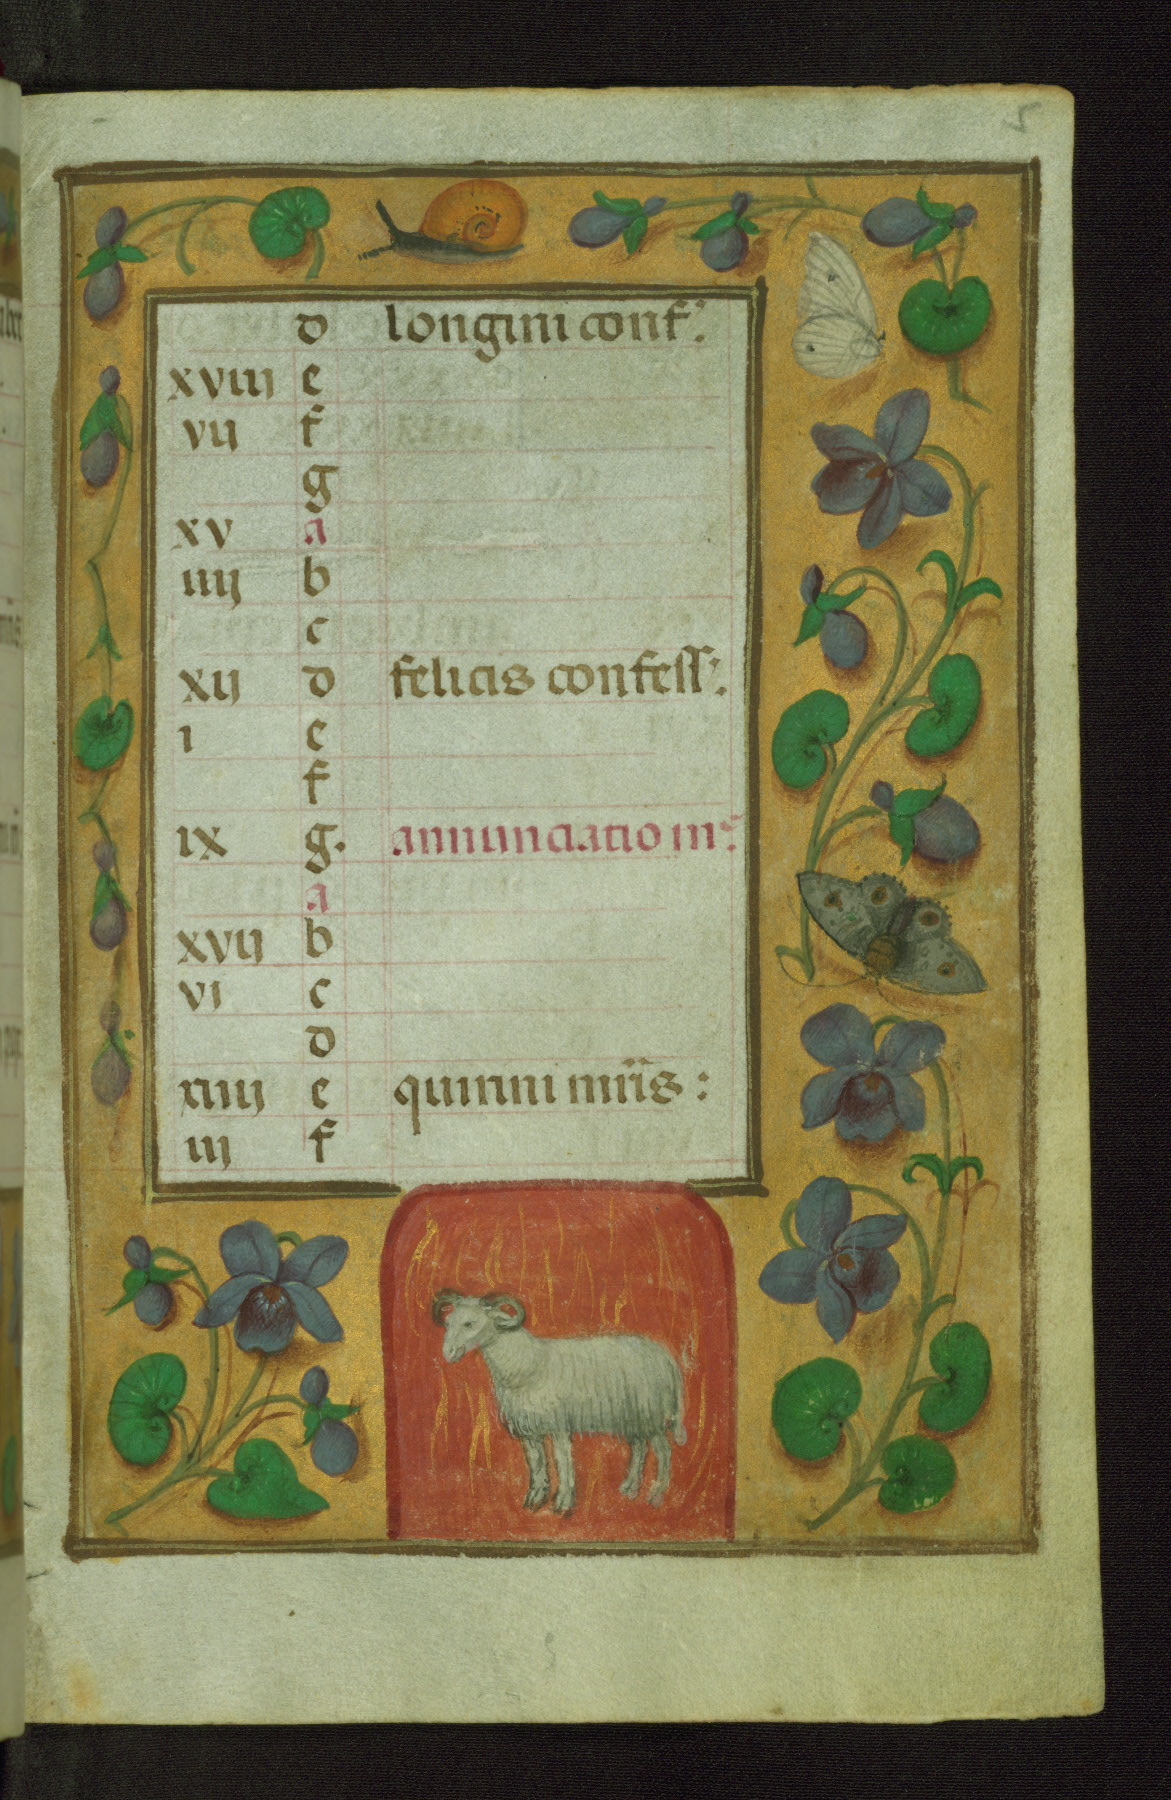 5
d longini conf:
xviij e
vij f
g
xv a
iiij b
c
xij d felicis confess:
i e
f
ix g. annunciatio m:
a
xvij b
vi c
d
xiiij e quirini mris:
iij f